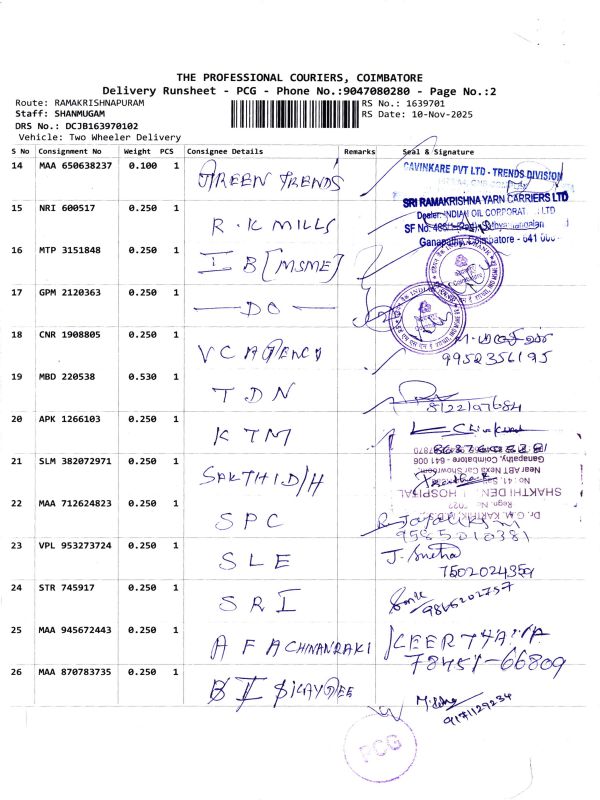 THE PROFESSIONAL COURIERS, COIMBATORE
Delivery Runsheet - PCG - Phone No.:9047080280 - Page No.:2
Route: RAMAKRISHNAPURAM RS No.: 1639701
Staff: SHANMUGAM RS Date: 10-Nov-2025
DRS No.: DCJB163970102
Vehicle: Two Wheeler Delivery
S No Consignment No Weight PCS Consignee Details Remarks Seal & Signature
14 MAA 650638237 0.100 1 GREEN TRENDS
CAVINKARE PVT LTD - TRENDS DIVISION
15 NRI 600517 0.250 1 R.K MILLS
SRI RAMAKRISHNA YARN CARRIERS LTD
Dealer: INDIAN OIL CORPORAT LTD
SF No.
Ganapathy, Coimbatore - 641 006
16 MTP 3151848 0.250 1 I B [MSME]
17 GPM 2120363 0.250 1 — DO —
18 CNR 1908805 0.250 1 VC AGENCY
9952356195
19 MBD 220538 0.530 1 T D N
8122197684
20 APK 1266103 0.250 1 K T M
21 SLM 382072971 0.250 1 SAKTHI D/H
Ganapathy, Coimbatore - 641 006
Near ABT Nexa Car Showroom
SHAKTHI DEN L HOSPITAL
22 MAA 712624823 0.250 1 S P C
9585010381
23 VPL 953273724 0.250 1 S L E
J. Sneha
7502024359
24 STR 745917 0.250 1 S R I
9865202757
25 MAA 945672443 0.250 1 A F A CHINANRAKI
KEERTHANA
78451-66809
26 MAA 870783735 0.250 1 B I
9171129234
PCG